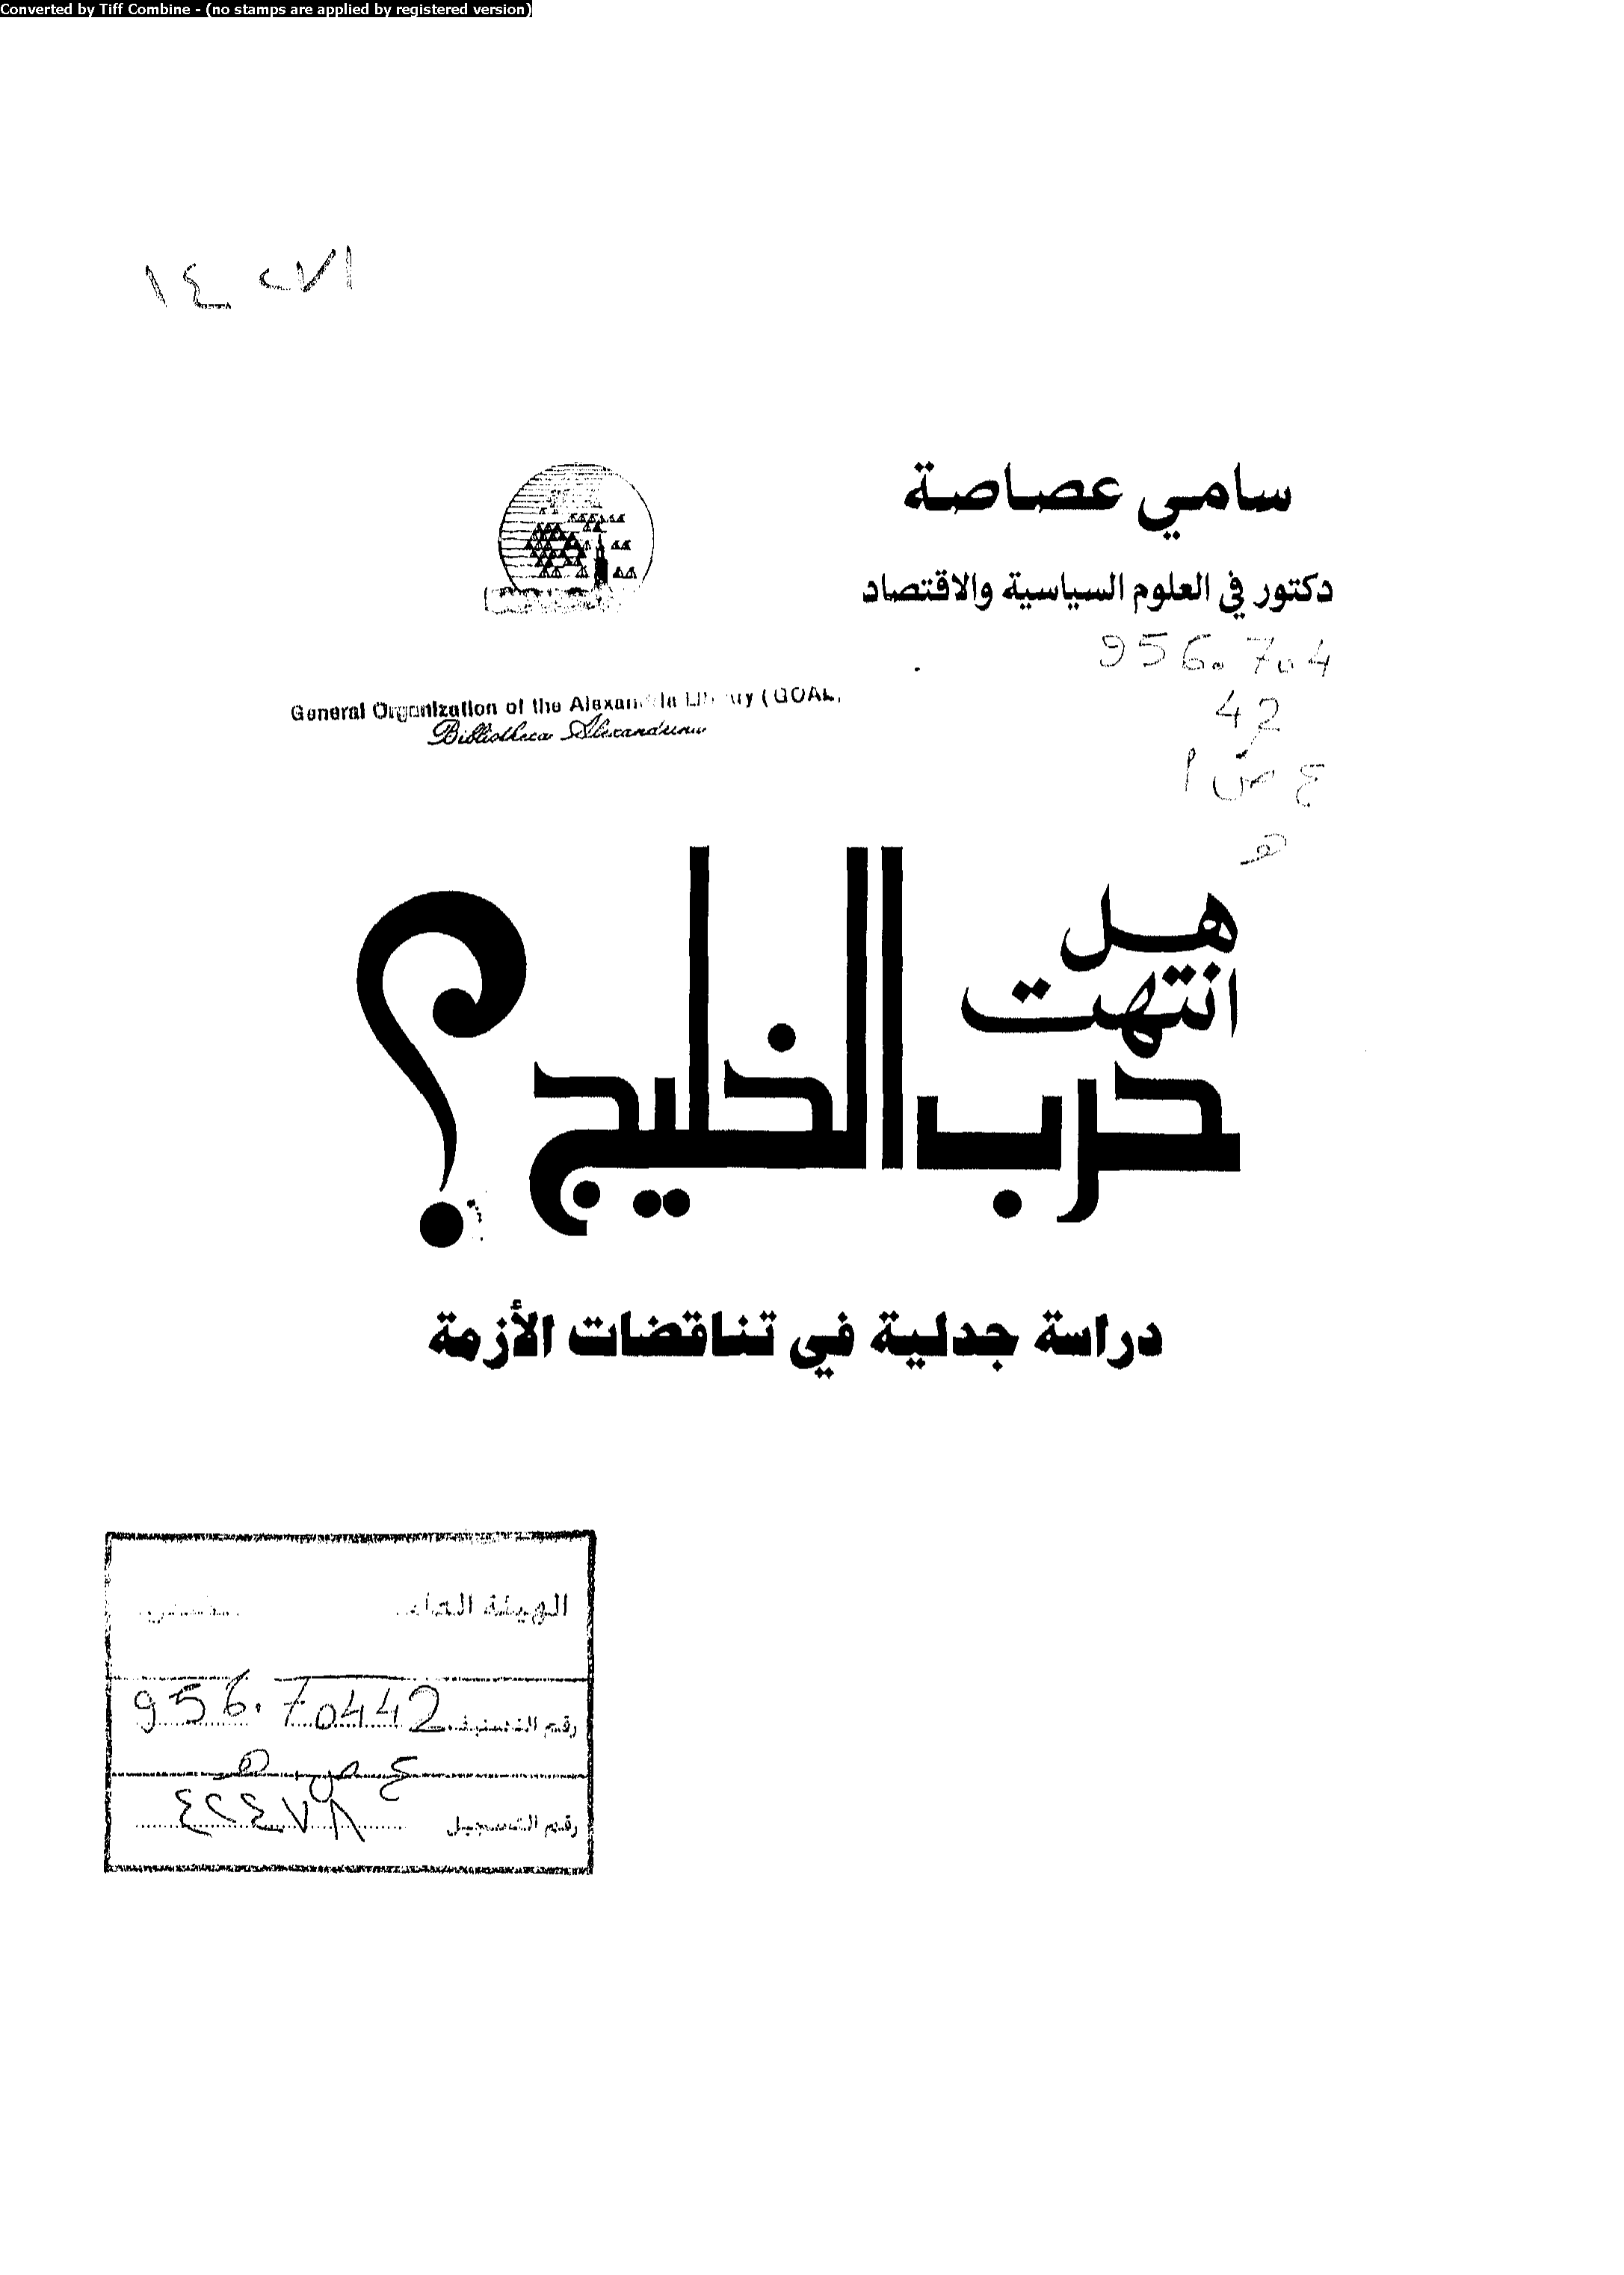 Converted by Tiff Combine - (no stamps are applied by registered version)
سامي عصاصة
دكتور في العلوم السياسية والاقتصاد
956.704
42
ع ص ا
هـ
General Organization of the Alexandria Library (GOAL)
Bibliotheca Alexandrina
هل
انتهت
حرب الخليج؟
دراسة جدلية في تناقضات الأزمة
الهيئة العامة
رقم التصنيف 956.70442
ع ص هـ
رقم التسجيل ٤٢٤٧٨